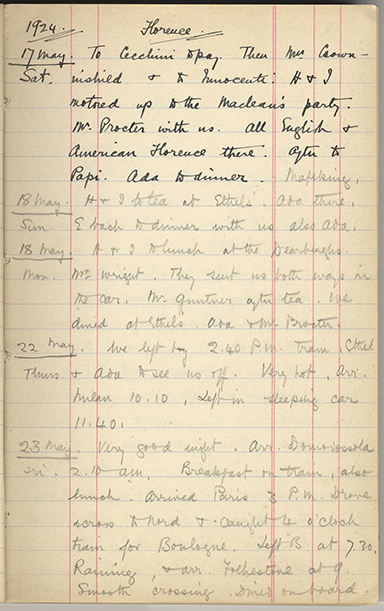 1924. Florence.
17 May. To Cecclini to pay. Then Mrs Crown-
Sat. inshield & to Innocenti. H & I
motored up to the Maclean's party.
Mr. Procter with us. All English &
American Florence there. After to
Papi. Ada to dinner.
18 May. H & I to tea at Ethel's. Ada there.
Sun. E back to dinner with us also Ada.
18 May. H & I to lunch at the
Mon. Mr Wright. They sent us both ways in
the car. Mr. after tea. We
dined at Ethels. Ada & Mr Procter.
22 May. We left by 2.40 P.M. train. Ethel
Thurs & Ada to see us off. Very hot. Arr.
Milan 10.10, left in sleeping car
11.40.
23 May. Very good night. Arr. Domodossola
Fri. 2.10 am. Breakfast on train, also
lunch. Arrived Paris 3 P.M. Drove
across to Nord & caught 4 o'clock
train for Boulogne. Left B at 7.30.
Raining, & arr. Folkestone at 9.
Smooth crossing. Dined on board